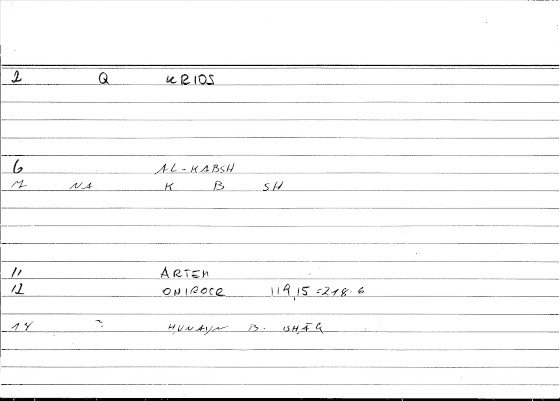 2 Q KRIOS
6 AL-KABSH
M NA K B SH
11 ARTEM
12 ONIROCR 119,15 = 218.6
14 ? HUNAYN B. ISHĀQ